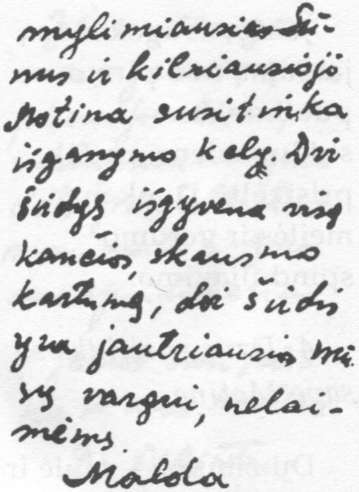 mylimiausias Sū-
nus ir kilniausioji
Motina susitinka
išganymo kely. Dvi
širdys išgyvena visą
kančios, skausmo
kartumą, dvi širdis
yra jautriausios mū
sų vargui, nelai-
mėms.
Malda